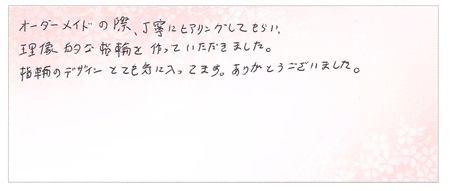 オーダーメイドの際、丁寧にヒアリングしてもらい、
理像的な指輪を作っていただきました。
指輪のデザインとても気に入ってます。ありがとうございました。